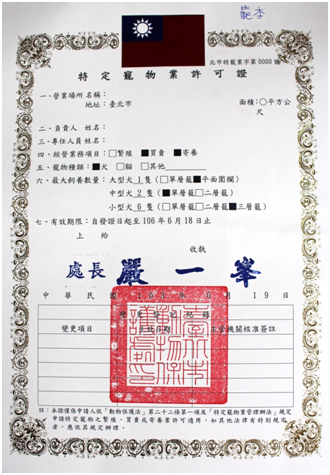 範本
北市特寵業字第0000號
特定寵物業許可證
一、營業場所名稱:
地址:臺北市 面積:○平方公尺
二、負責人 姓名:
三、專任人員姓名:
四、經營業務項目:□繁殖 ■買賣 ■寄養
五、寵物種類:■犬 □貓 □其他
六、最大飼養數量:大型犬 1隻(□單層籠■平面圍欄)
中型犬 2隻(■單層籠□二層籠)
小型犬 6隻(□單層籠□二層籠■三層籠)
七、有效期限:自發證日起至106年6月18止
上 給
收執
處長 嚴一峯
中華民國 年 6月19日
變更登記紀錄
變更項目 主管機關核准簽註
註:本證僅係申請人依「動物保護法」第二十二條第一項及「特定寵物業管理辦法」規定
申請特定寵物之繁殖、買賣或寄養業許可適用,如其他法律有特別規定
者,應依其規定辦理。